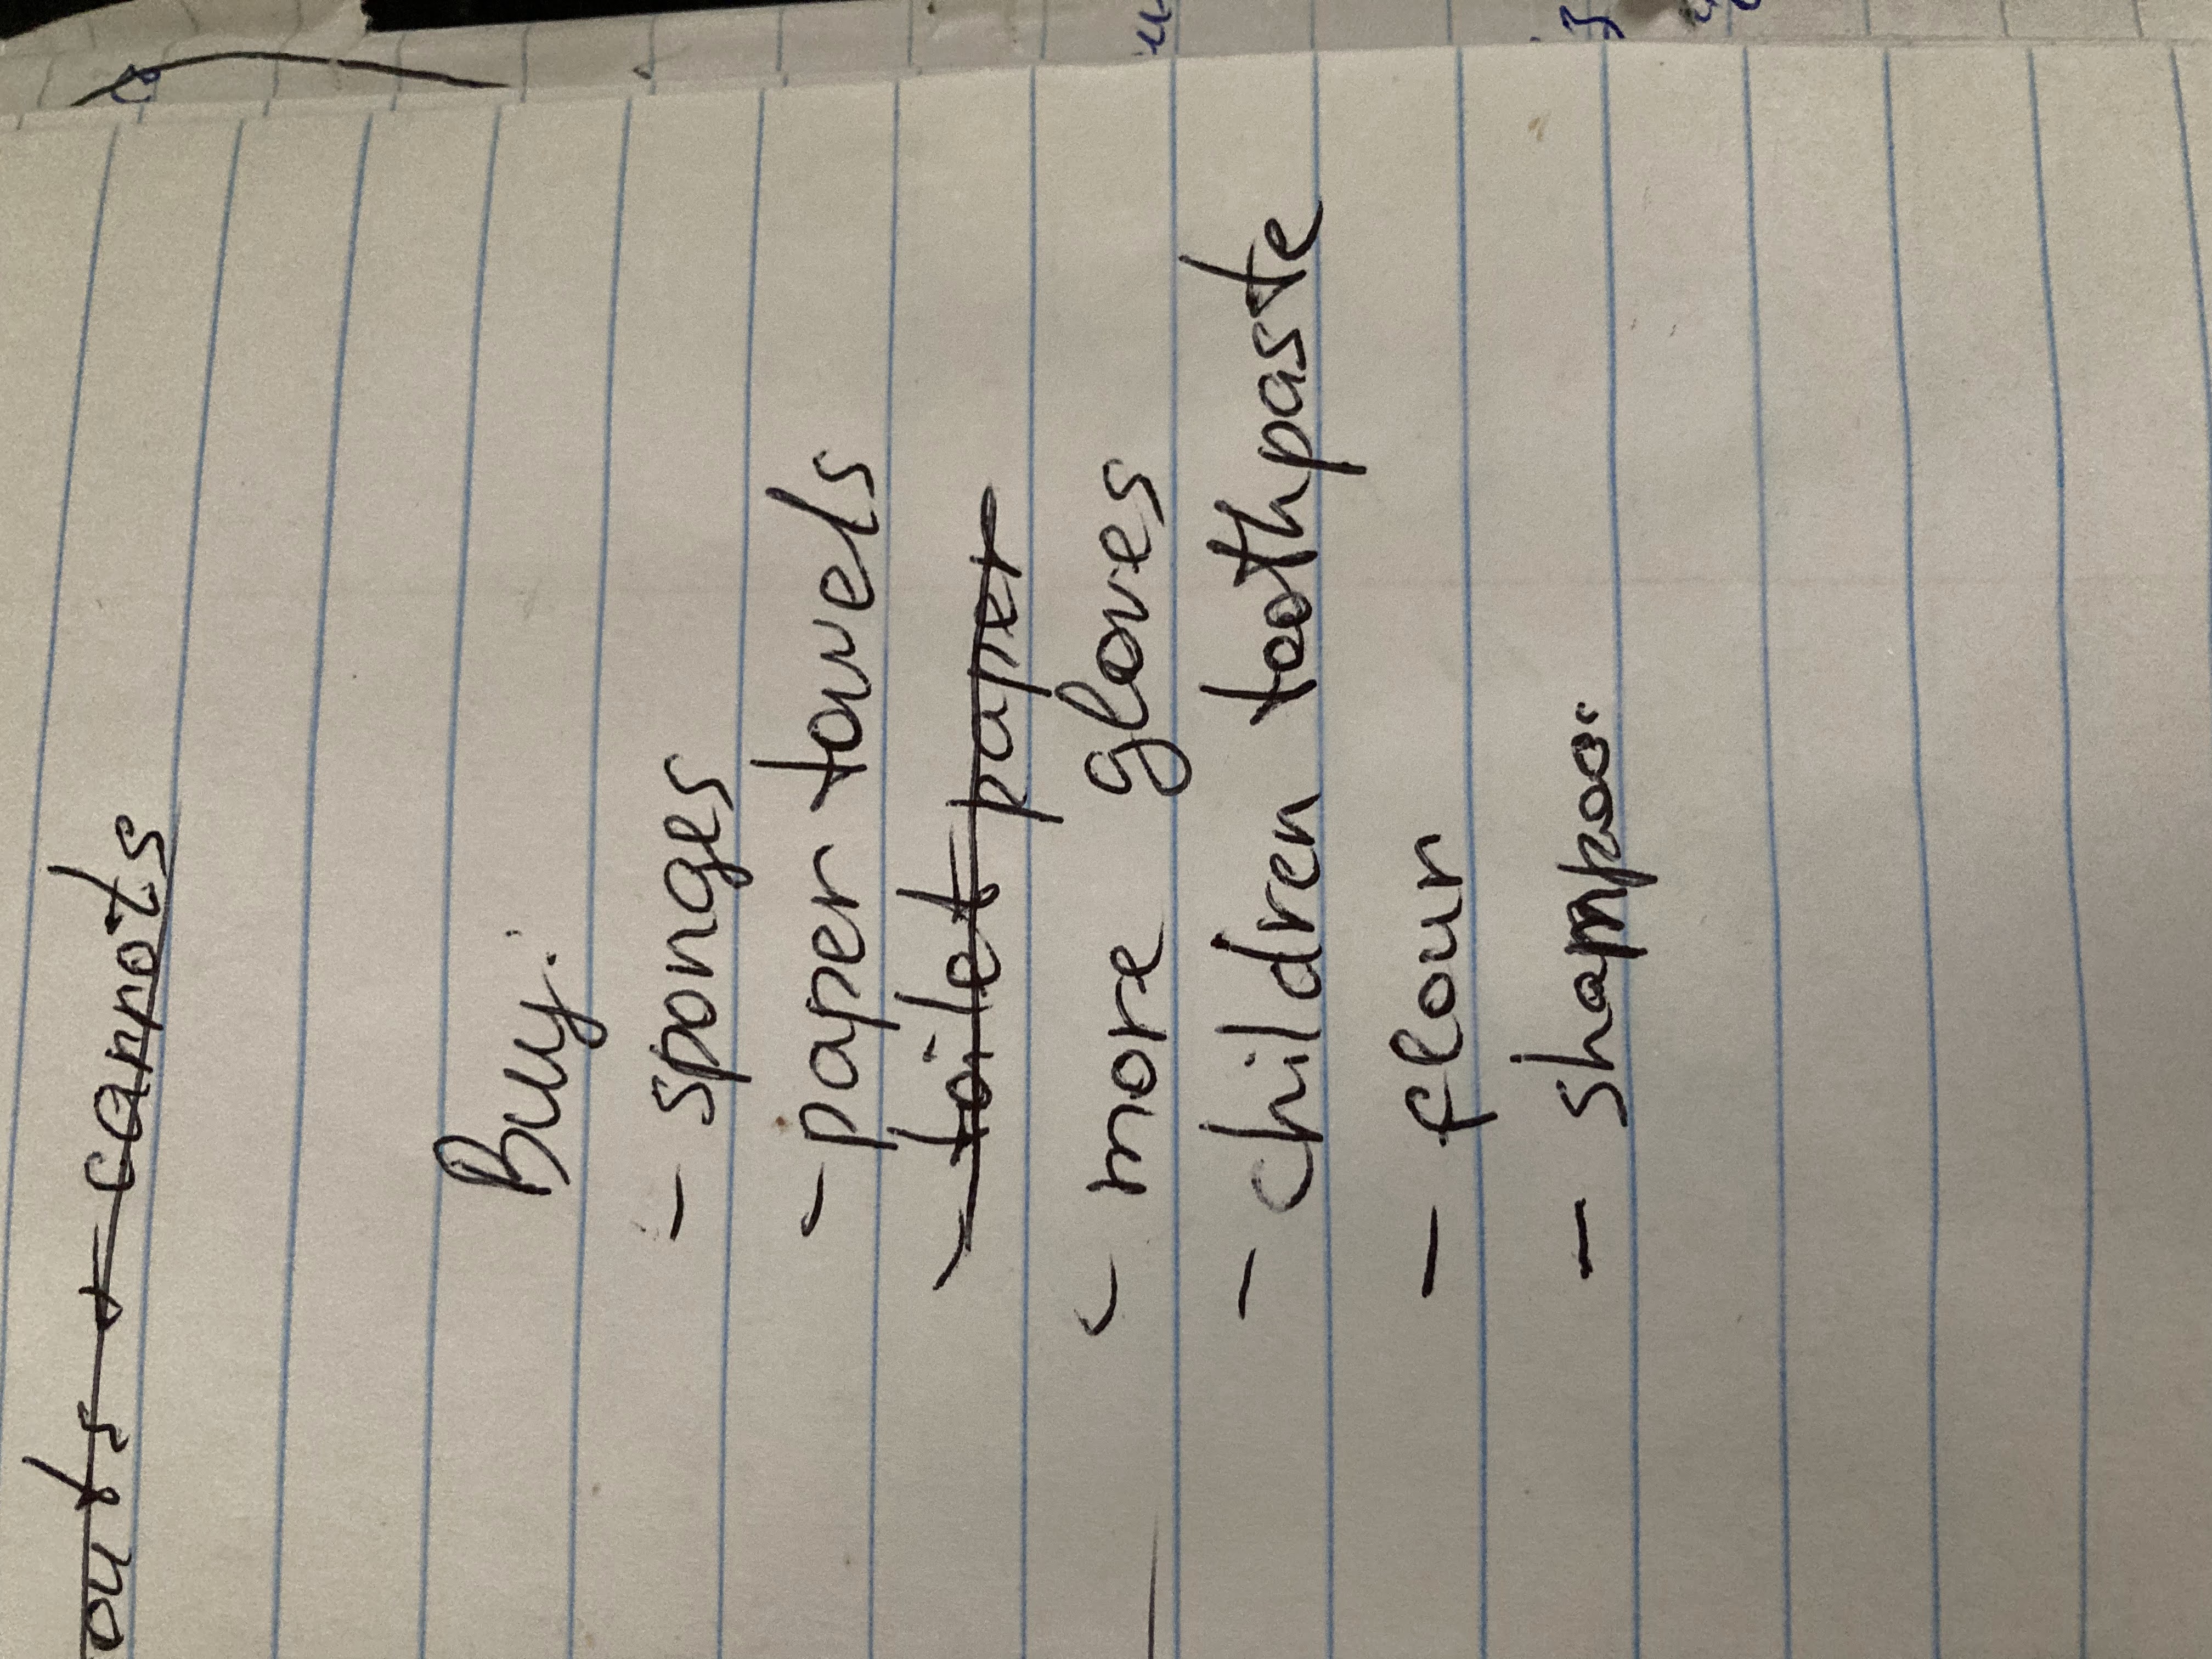 outs + carrots
Buy:
- sponges
- paper towels
- toilet paper
- more gloves
- children toothpaste
- flour
- shampoo